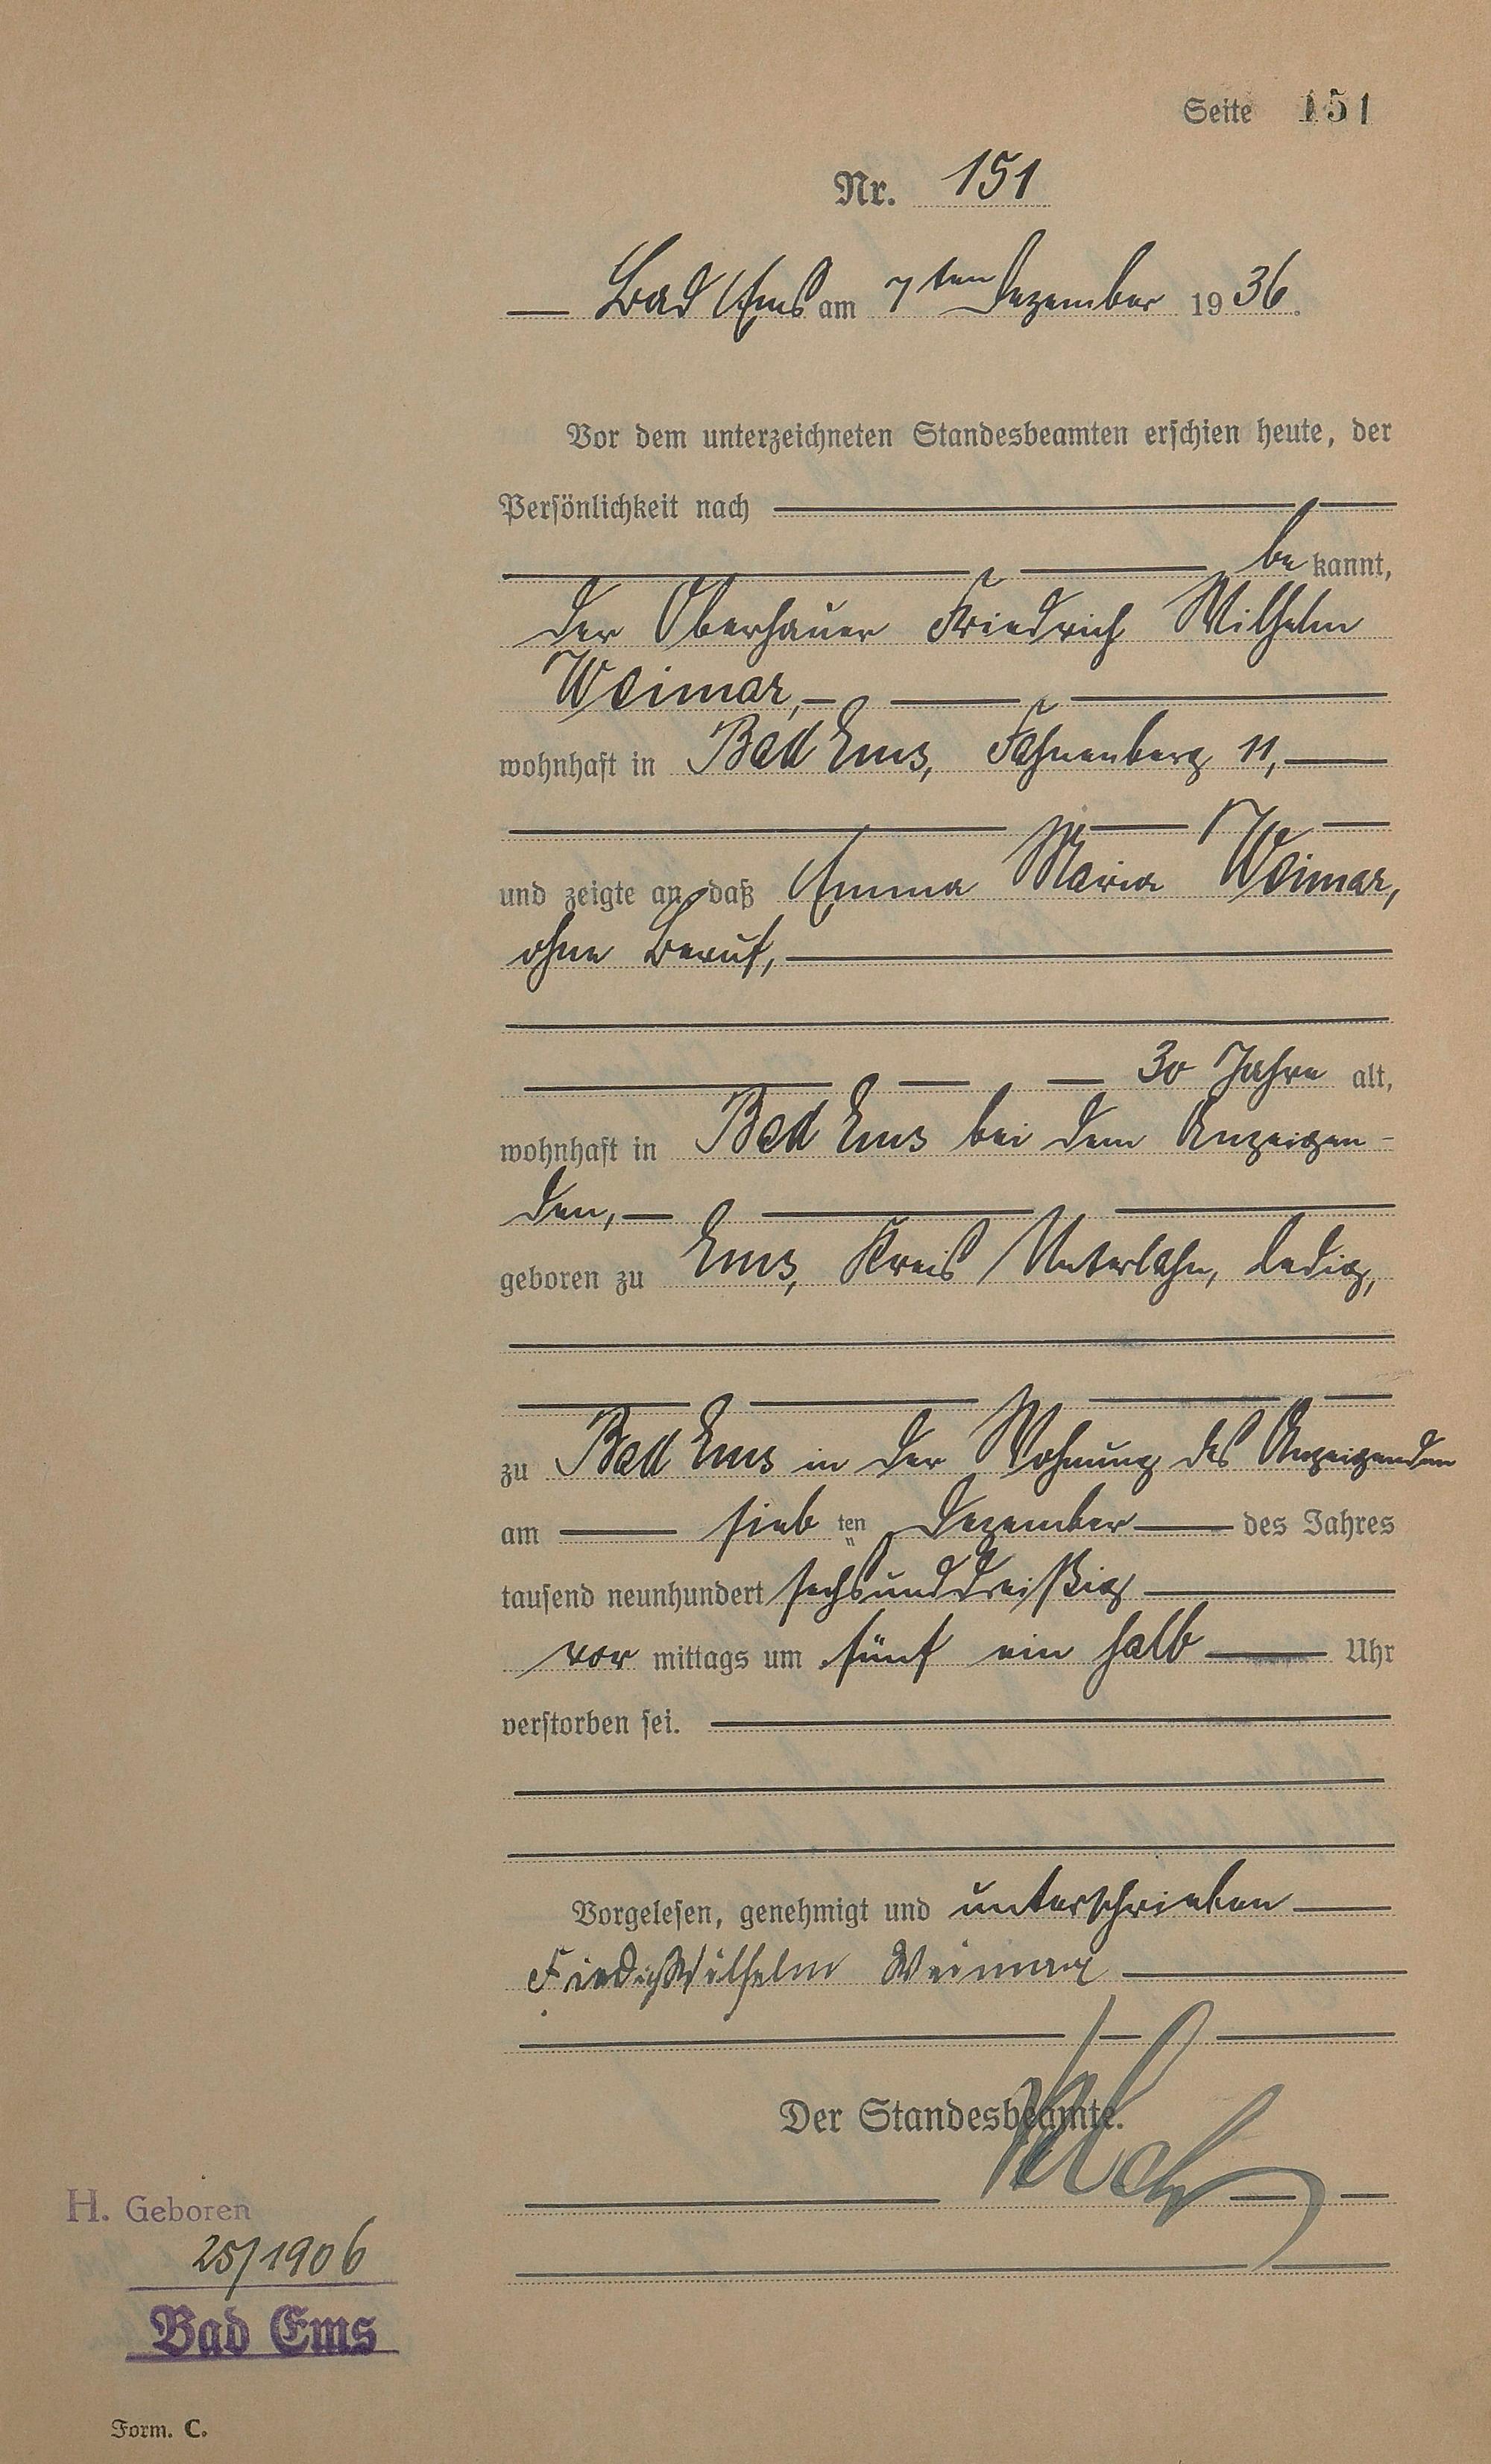 Seite 151
Nr. 151
Bad Ems am 7ten Dezember 1936.
Vor dem unterzeichneten Standesbeamten erschien heute, der
Persönlichkeit nach
bekannt,
der Oberhauer Friedrich Wilhelm
Weimar,
wohnhaft in Bad Ems, Fahnenberg 11,
und zeigte an, daß Emma Maria Weimar,
ohne Beruf,
30 Jahre alt,
wohnhaft in Bad Ems bei dem Anzeigen-
den,
geboren zu Ems, Kreis Unterlahn, ledig,
zu Bad Ems in der Wohnung des Anzeigenden
am siebten Dezember des Jahres
tausend neunhundert sechsunddreißig
vormittags um fünf ein halb Uhr
verstorben sei.
Vorgelesen, genehmigt und unterschrieben
Friedrich Wilhelm Weimar
Der Standesbeamte.
H. Geboren
25/1906
Bad Ems
Form. C.